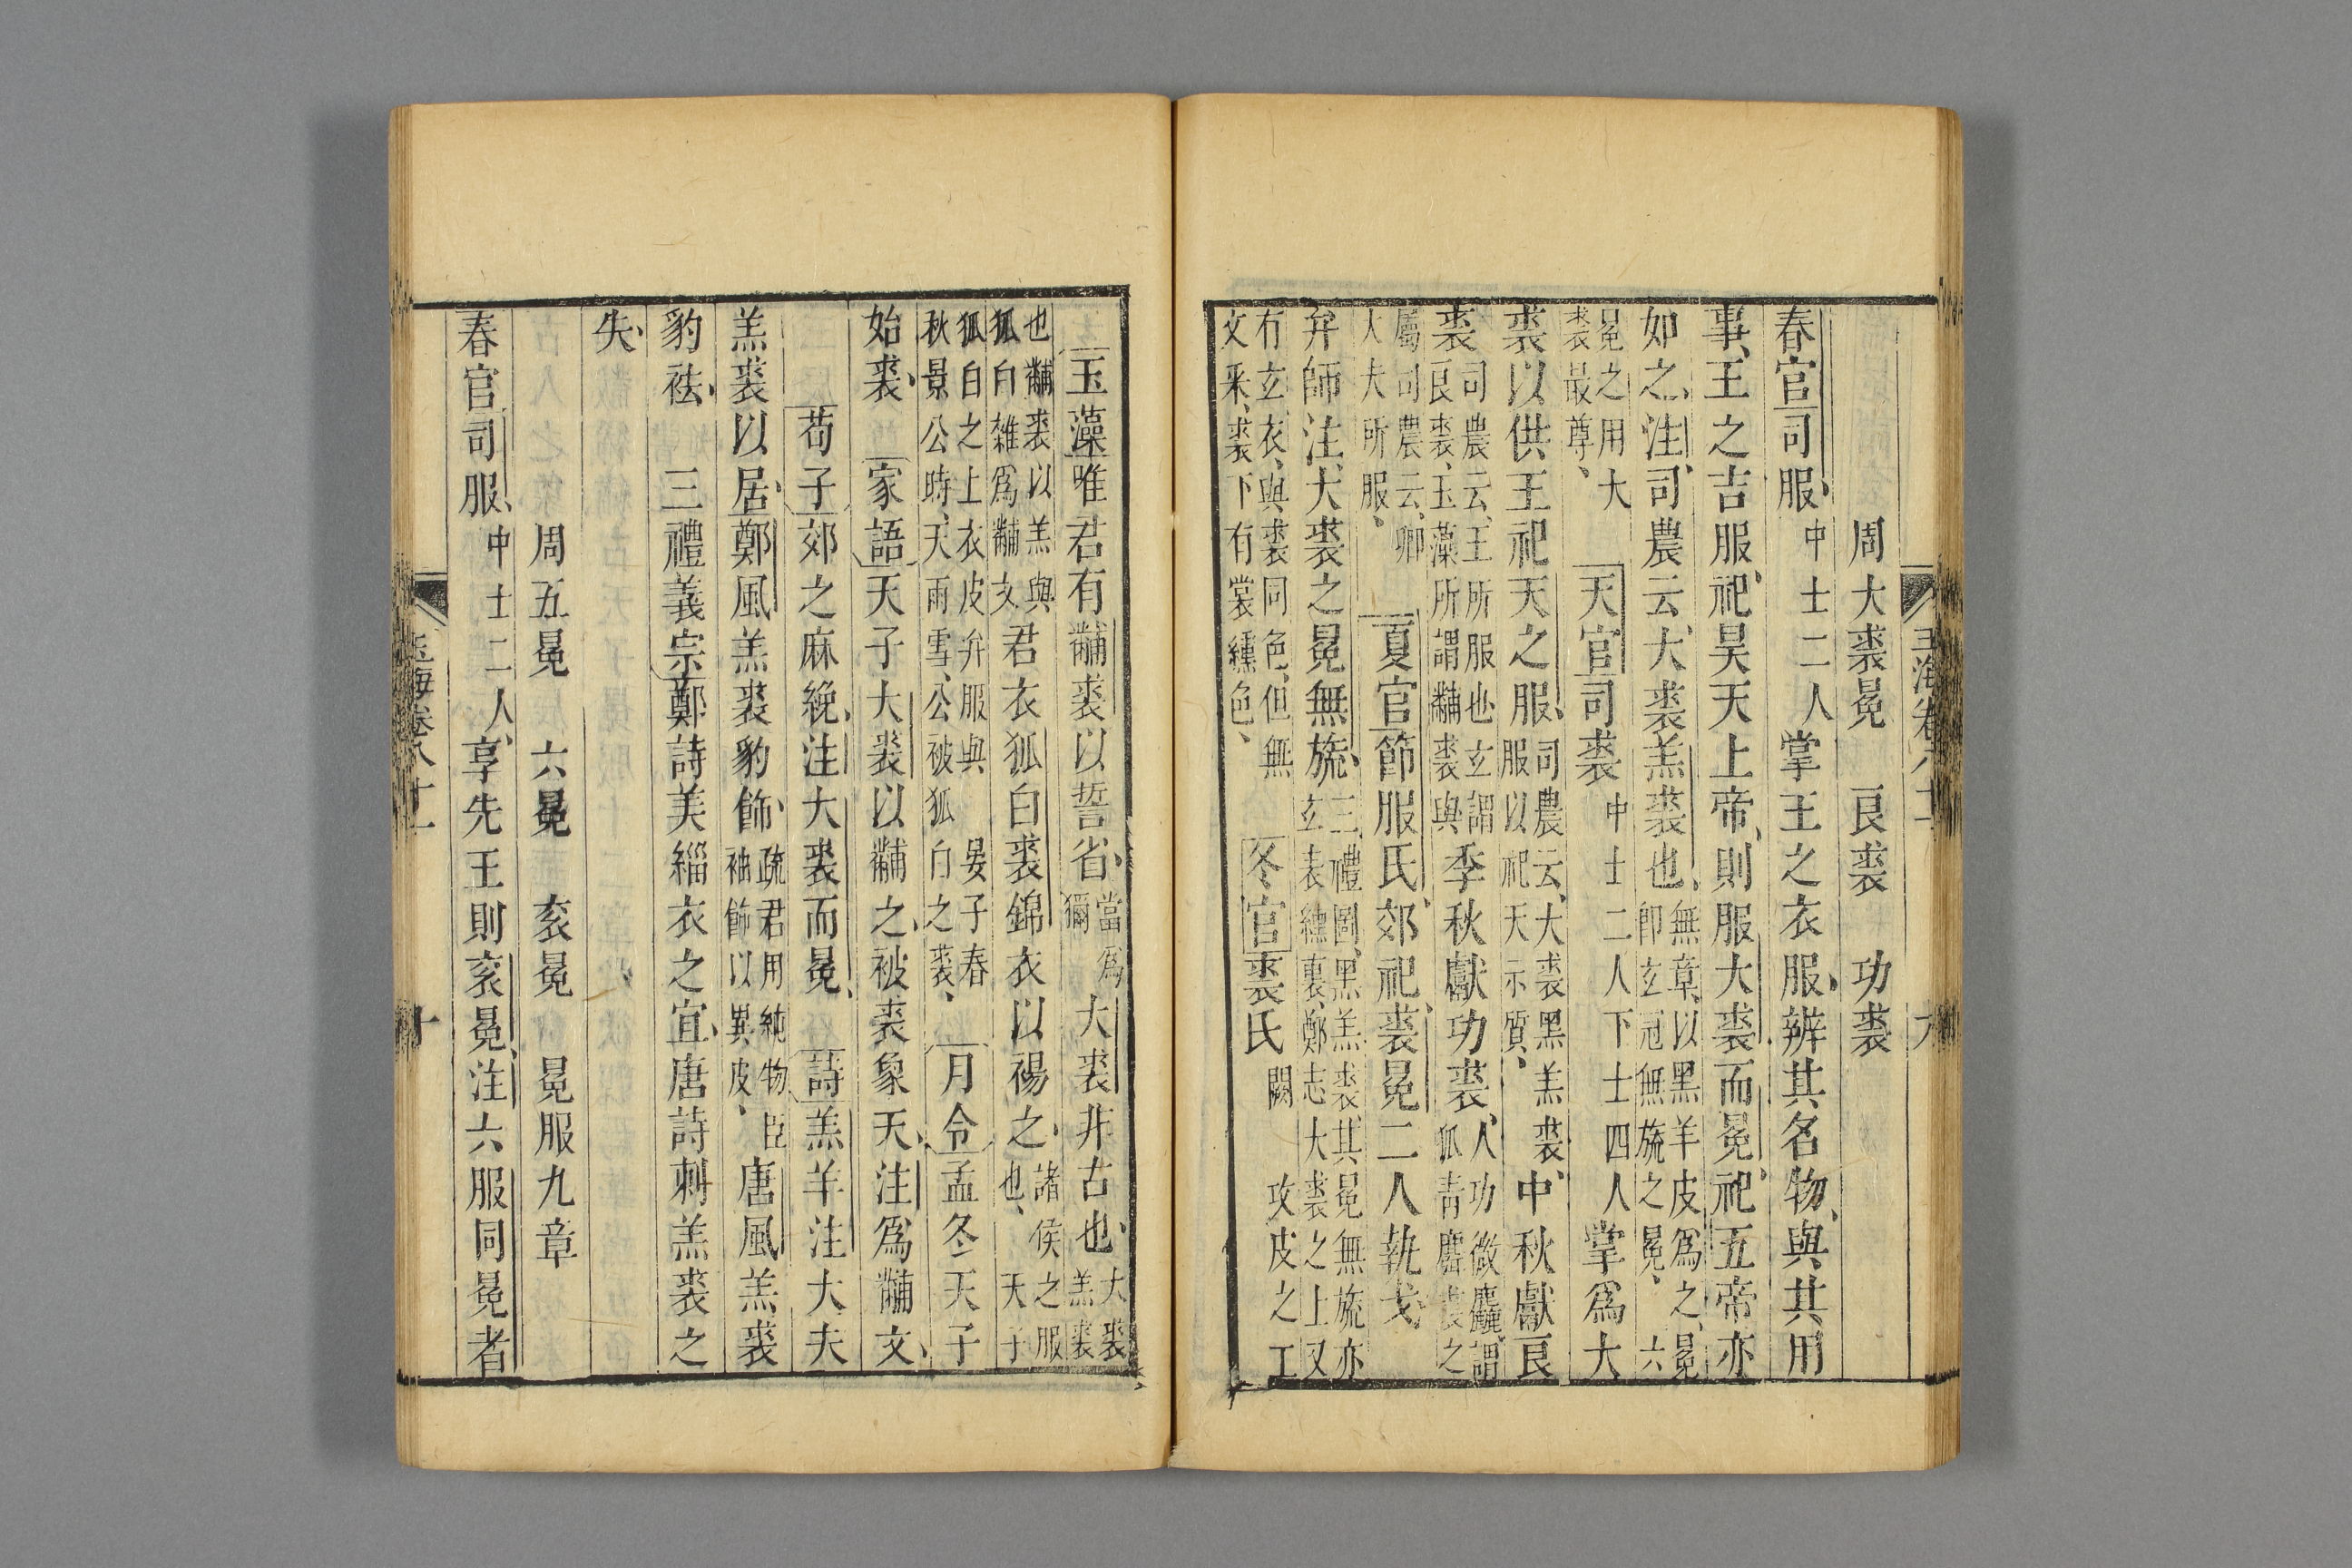 玉海卷八十 九
周大裘冕 良裘 功裘
春官司服中士二人掌王之衣服辨其名物與其用
事王之吉服祀昊天上帝則服大裘而冕祀五帝亦
如之注司農云大裘羔裘也無章以黑羊皮爲之冕卽玄冠無旒之冕六
冕之用大裘最尊 天官司裘中士二人下士四人掌爲大
裘以供王祀天之服司農云大裘黑羔裘服以祀天示質中秋獻良
裘司農云王所服也玄謂良裘玉藻所謂黼裘與季秋獻功裘人功微麤謂狐青麛裘之
屬司農云卿大夫所服 夏官節服氏郊祀裘冕二人執戈
弁師注大裘之冕無旒三禮圖黑羔裘其冕無旒亦玄表纁裏鄭志大裘之上又
有玄衣與裘同色但無文采裘下有裳纁色 冬官裘氏闕攻皮之工
玉藻唯君有黼裘以誓省當爲獮大裘非古也大裘羔裘
也黼裘以羔與狐白雜爲黼文君衣狐白裘錦衣以裼之諸侯之服也天子
狐白之上衣皮弁服與 晏子春秋景公時天雨雪公被狐白之裘 月令孟冬天子
始裘 家語天子大裘以黼之被裘象天注爲黼文
荀子郊之麻絻注大裘而冕 詩羔羊注大夫
羔裘以居鄭風羔裘豹飾疏君用純物臣袖飾以異皮唐風羔裘
豹袪 三禮義宗鄭詩美緇衣之宜唐詩刺羔裘之
失
周五冕 六冕 衮冕 冕服九章
春官司服中士二人享先王則衮冕注六服同冕者
玉海卷八十二 十